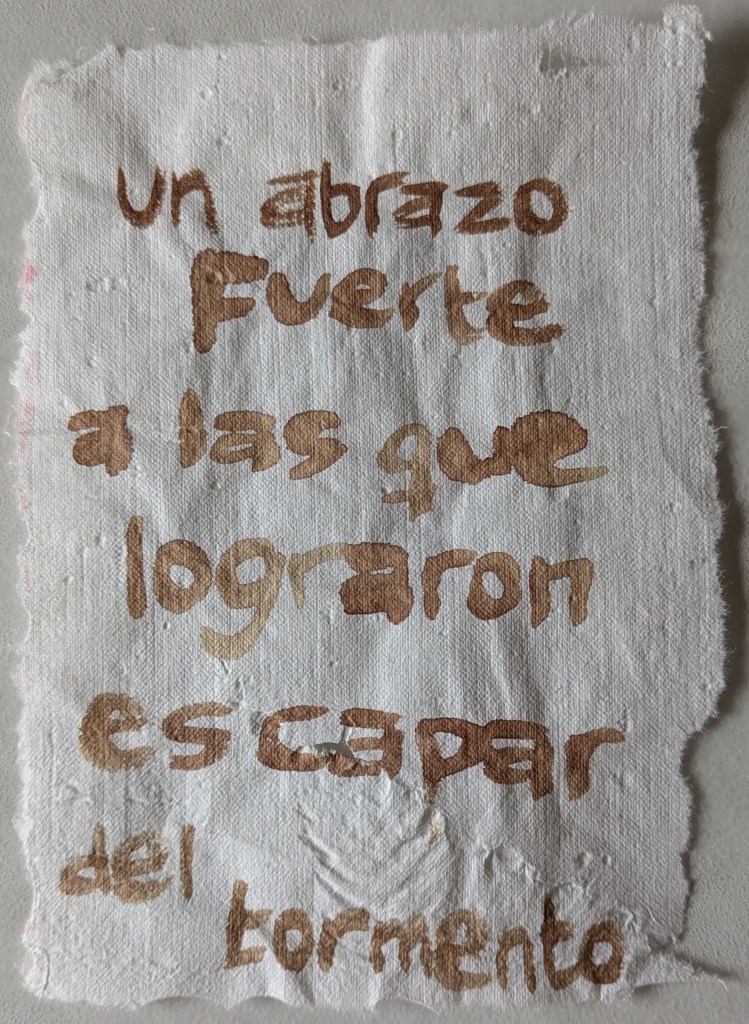 un abrazo
Fuerte
a las que
lograron
escapar
del
tormento